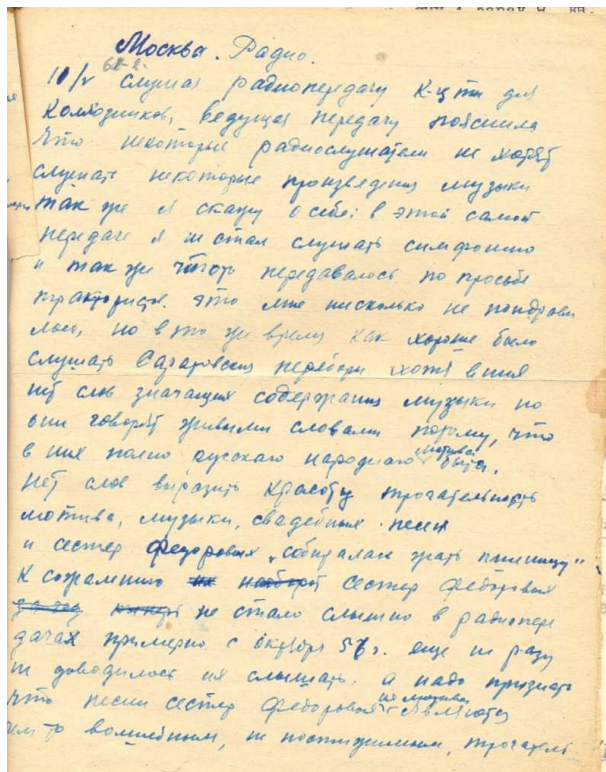 Москва. Радио.
10/V слушая радиопередачу к-ц для
колхозников, ведущая передачу пояснила
что некоторые радиослушатели не хотят
слушать некоторые произведения музыки
так же я скажу о себе: в этой самой
передаче я не стал слушать симфонию
и так же что-то передавалось по просьбе
трактористов. это мне нисколько не понрави
лось, но в то же время как хороше было
слушать Саратовских переборы хотя в них
нет слов значащих содержания музыки но
они говорят живыми словами потому, что
в них полно русскаго народнаго мотива быта.
Нет слов выразить красоту трогательность
мотива, музыки, свадебных песен
и сестер Федоровых „собиралась жать пшеницу"
К сожалению сестер Федоровых
не стало слышно в радиопере
дачах примерно с октября 57 г. еще ни разу
не доводилось их слышать. а надо признать
что песни сестер Федоровых их мотивы являются
чем то волшебным, не постижимым, трогатель